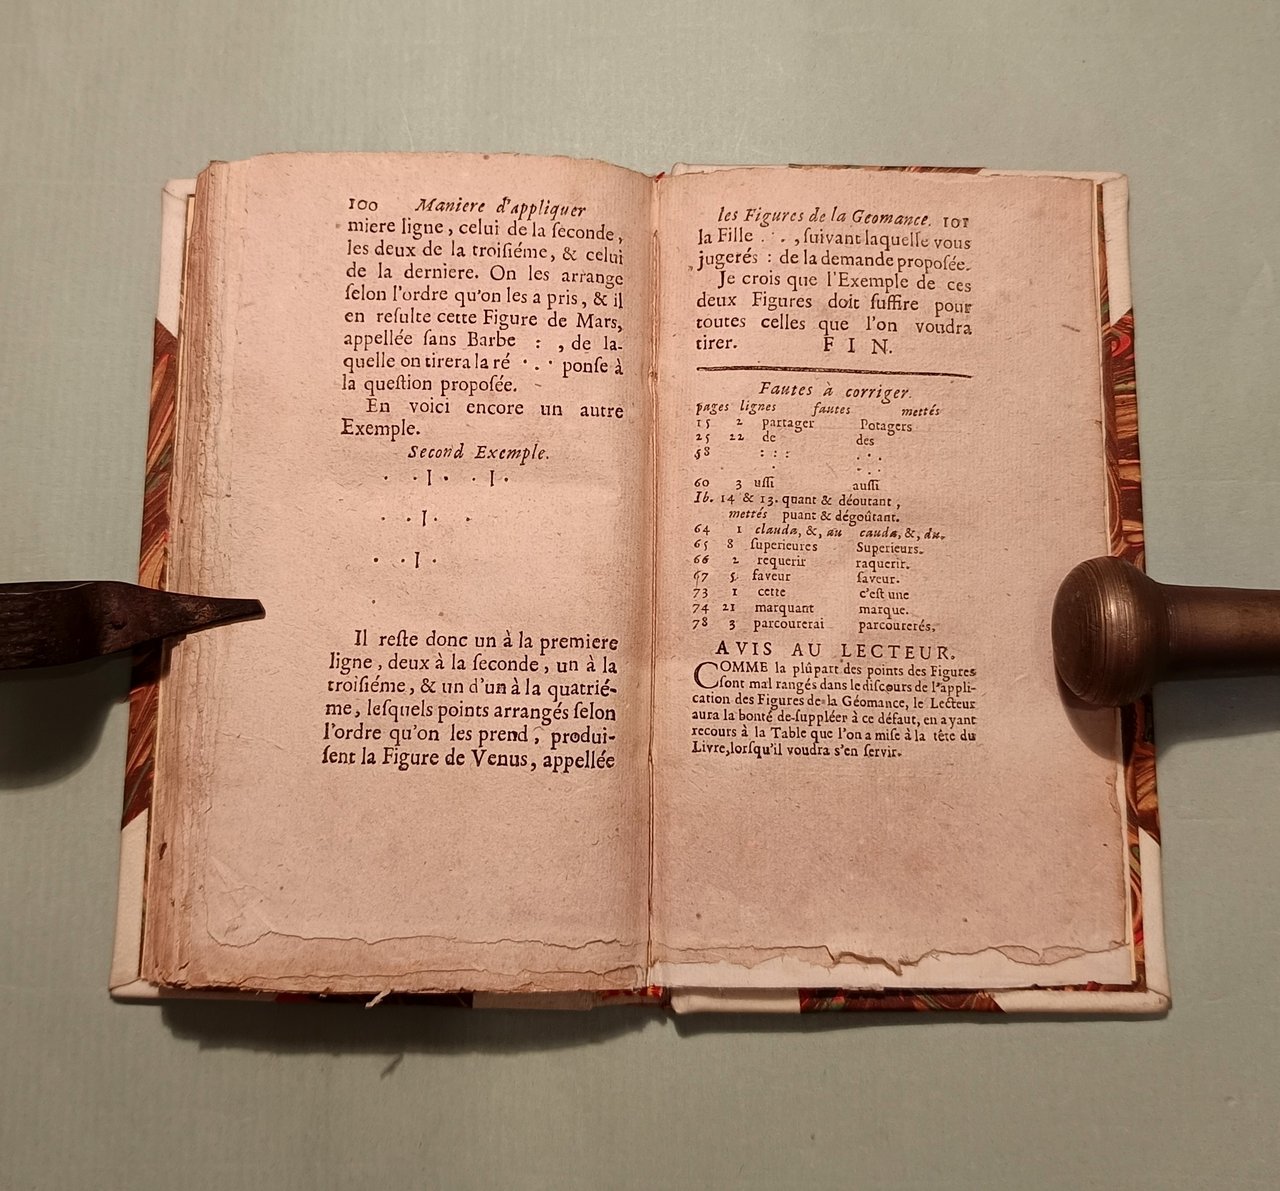 100 Maniere d'appliquer
miere ligne, celui de la ſeconde,
les deux de la troiſiéme, & celui
de la derniere. On les arrange
ſelon l'ordre qu'on les a pris, & il
en reſulte cette Figure de Mars,
appellée ſans Barbe : , de la-
quelle on tirera la ré · . · ponſe à
la queſtion propoſée.
En voici encore un autre
Exemple.
Second Exemple.
· · I · · I ·
· · I · ·
· · I ·
·
Il reſte donc un à la premiere
ligne, deux à la ſeconde, un à la
troiſiéme, & un d'un à la quatrié-
me, leſquels points arrangés ſelon
l'ordre qu'on les prend, produi-
ſent la Figure de Venus, appellée
les Figures de la Geomance. 101
la Fille . · . , ſuivant laquelle vous
jugerés : de la demande propoſée.
Je crois que l'Exemple de ces
deux Figures doit ſuffire pour
toutes celles que l'on voudra
tirer. FIN.
Fautes à corriger.
pages lignes fautes mettés
15 2 partager Potagers
25 22 de des
58 : : : . · .
. . .
60 3 uſſi auſſi
Ib. 14 & 13. quant & déoutant,
mettés puant & dégoûtant.
64 1 clauda, &, au cauda, &, du.
65 8 ſuperieures Superieurs.
66 2 requerir raquerir.
67 5 faveur ſaveur.
73 1 cette c'eſt une
74 21 marquant marque.
78 3 parcourerai parcourerés.
AVIS AU LECTEUR.
COMME la plûpart des points des Figures
ſont mal rangés dans le diſcours de l'appli-
cation des Figures de la Géomance, le Lecteur
aura la bonté de-ſuppléer à ce défaut, en ayant
recours à la Table que l'on a miſe à la tête du
Livre, lorſqu'il voudra s'en ſervir.